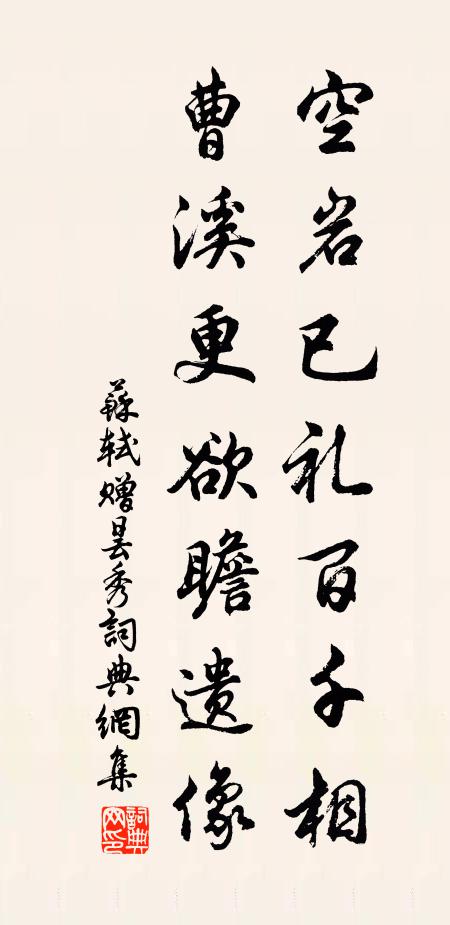 空岩已礼百千相
曹溪更欲瞻遺像
蘇軾贈曇秀詞典網集
詞典網印